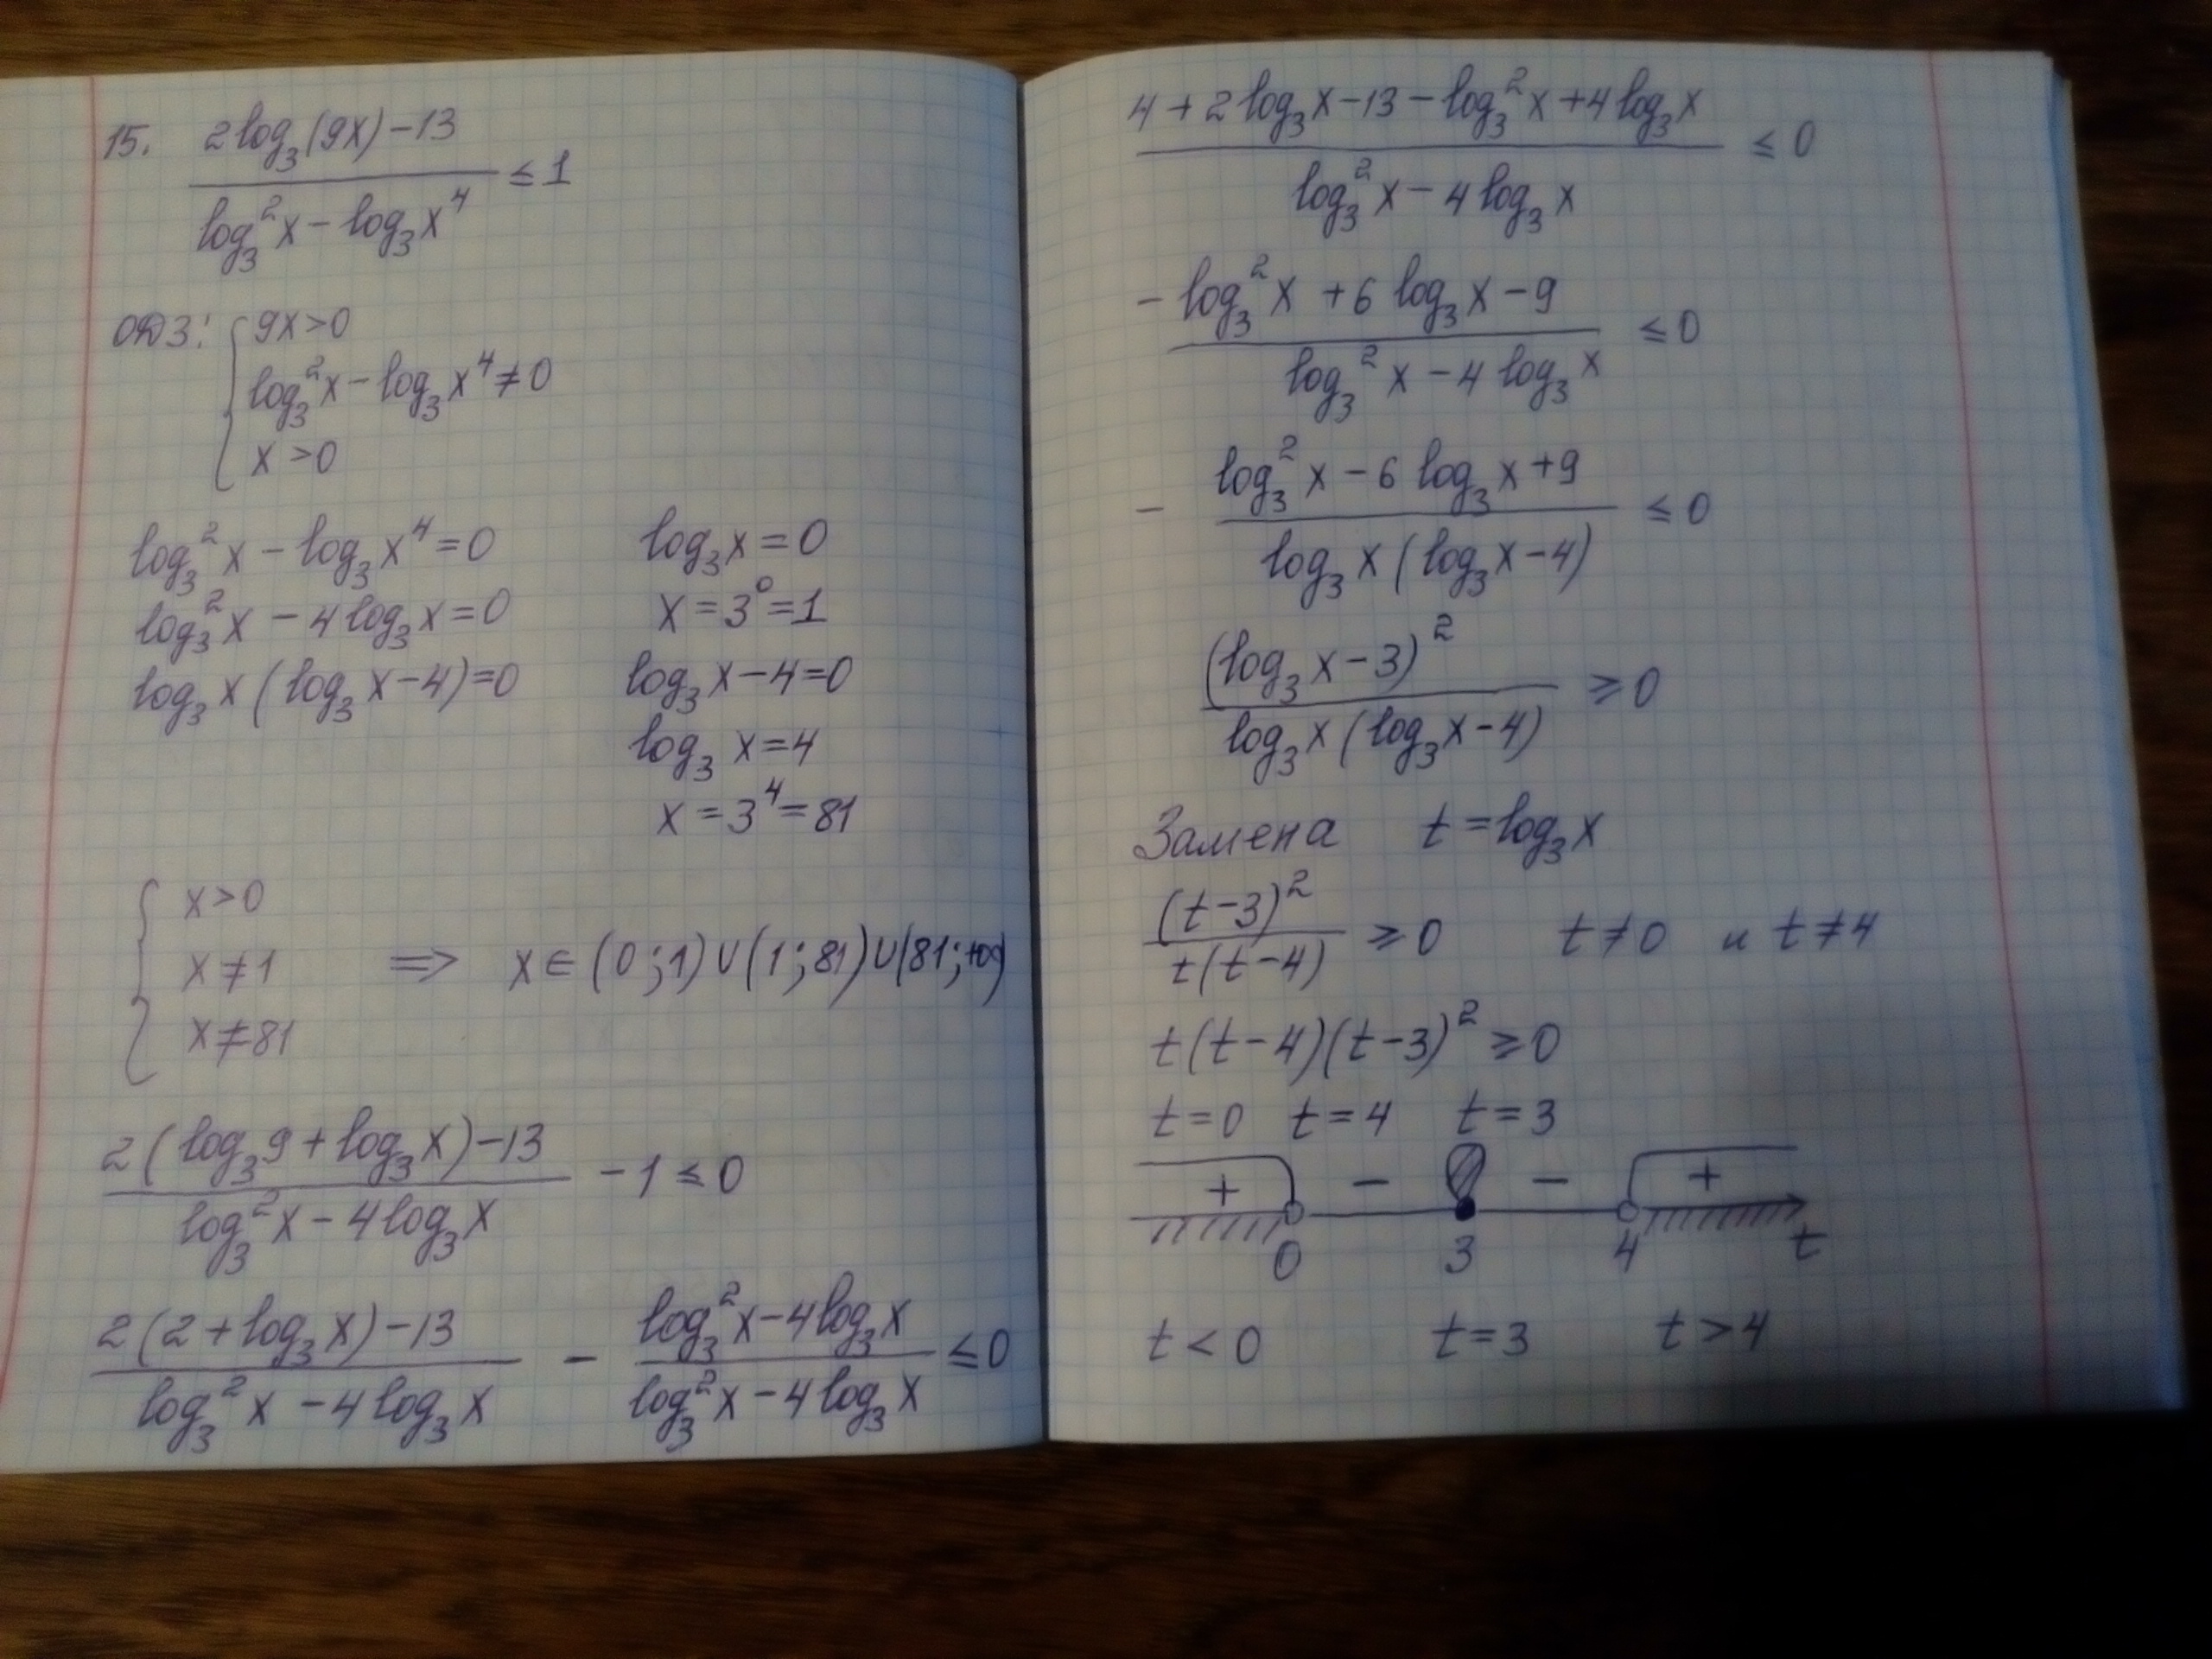 15. (2log₃(9x)−13)/(log₃²x−log₃x⁴) ≤ 1
ОДЗ: { 9x>0
log₃²x−log₃x⁴≠0
x>0
log₃²x−log₃x⁴=0
log₃²x−4log₃x=0
log₃x(log₃x−4)=0
log₃x=0
x=3⁰=1
log₃x−4=0
log₃x=4
x=3⁴=81
{ x>0
x≠1 ⟹ x∈(0;1)∪(1;81)∪(81;+∞)
x≠81
(2(log₃9+log₃x)−13)/(log₃²x−4log₃x) −1≤0
(2(2+log₃x)−13)/(log₃²x−4log₃x) − (log₃²x−4log₃x)/(log₃²x−4log₃x) ≤0
(4+2log₃x−13−log₃²x+4log₃x)/(log₃²x−4log₃x) ≤0
(−log₃²x+6log₃x−9)/(log₃²x−4log₃x) ≤0
− (log₃²x−6log₃x+9)/(log₃x(log₃x−4)) ≤0
(log₃x−3)²/(log₃x(log₃x−4)) ≥0
Замена t=log₃x
(t−3)²/(t(t−4)) ≥0 t≠0 и t≠4
t(t−4)(t−3)²≥0
t=0 t=4 t=3
+ − − +
0 3 4 t
t<0 t=3 t>4